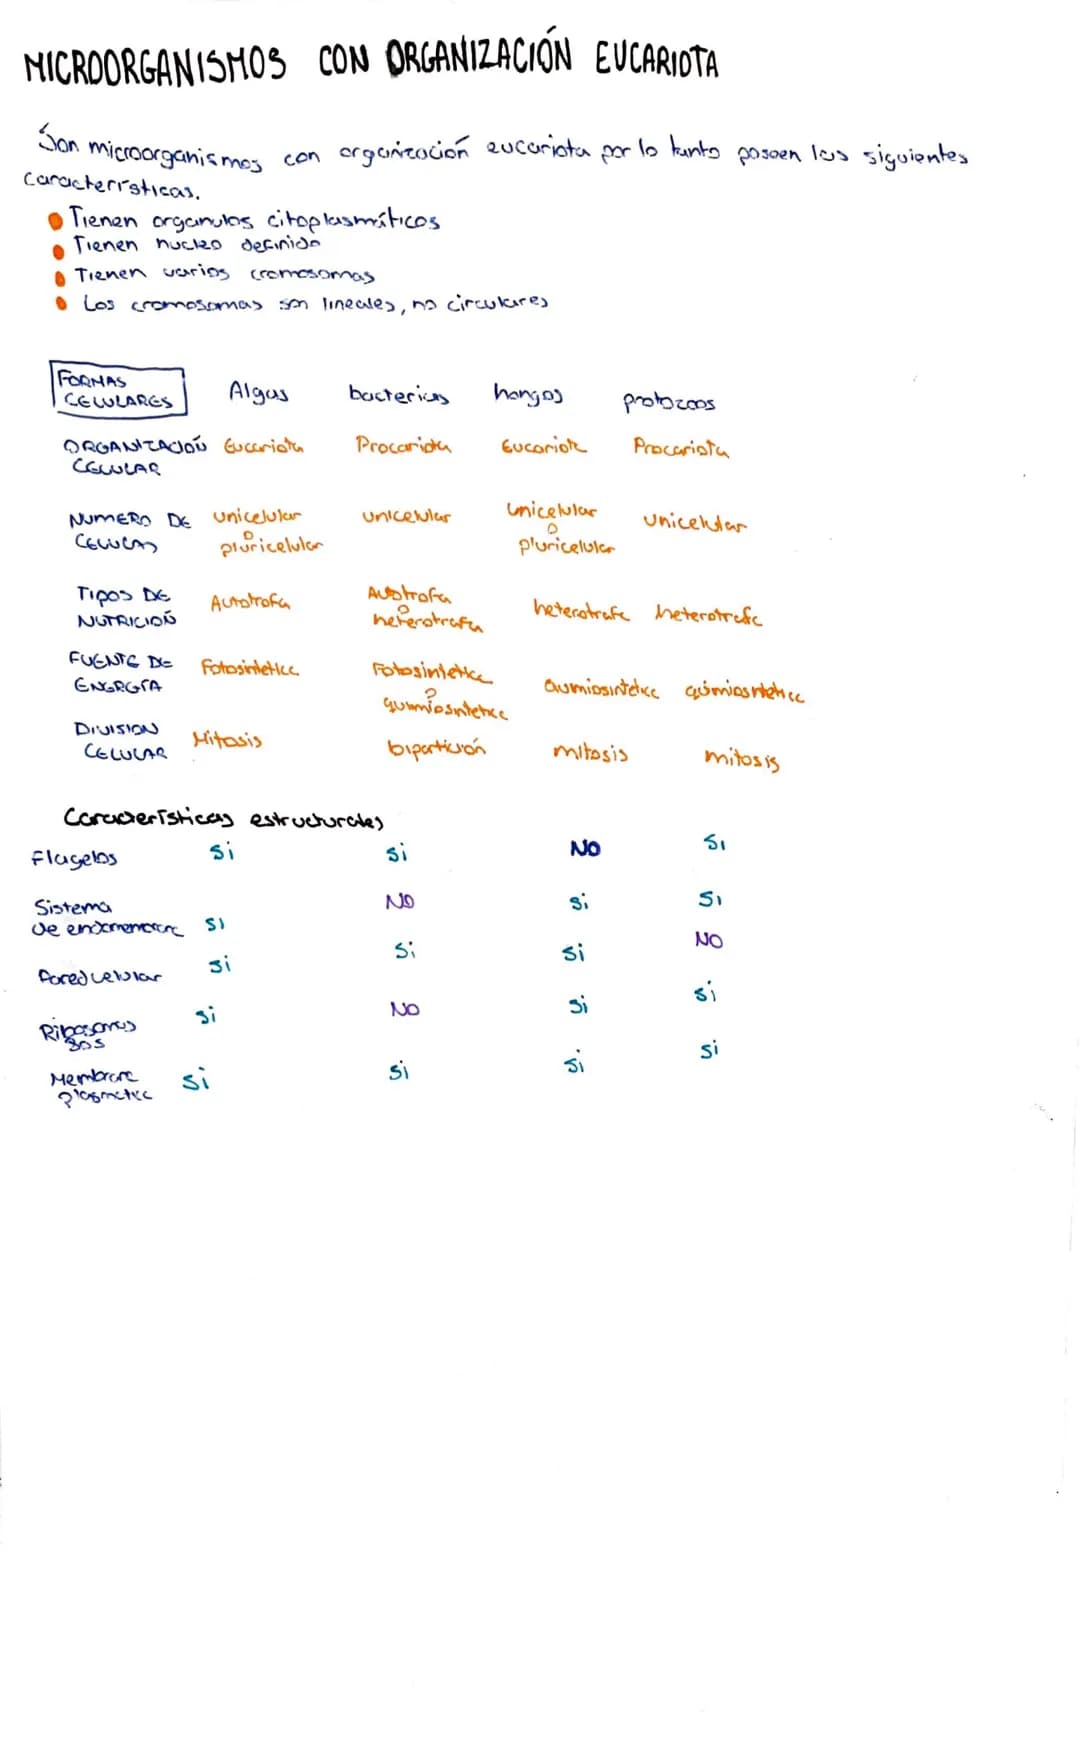 MICROORGANISMOS CON ORGANIZACIÓN EUCARIOTA
Son microorganismos con organización eucariota por lo tanto poseen las siguientes
características.
Tienen organulos citoplasmáticos
Tienen nucleo definido
Tienen varios cromosomas
Los cromosomas son lineales, no circulares
FORMAS
CELULARES Algas bacterias hongos protozoos
ORGANIZACIÓN Eucariota Procariota Eucariota Procariota
CELULAR
NUMERO DE unicelular unicelular unicelular unicelular
CELULAS o o
pluricelular pluricelular
TIPOS DE Autotrofa Autotrofa heterotrofa heterotrofa
NUTRICIÓN o
heterotrofa
FUENTE DE Fotosintetica Fotosintetica quimiosintetica quimiosintetica
ENERGÍA o
quimiosintetica
DIVISION Mitosis bipartición mitosis mitosis
CELULAR
Características estructurales
Flagelos Si Si NO Si
Sistema NO Si Si
de endomembrana Si
Pared celular Si Si Si NO
Ribosomas Si NO Si Si
80S
Membrana Si Si Si Si
plasmatica